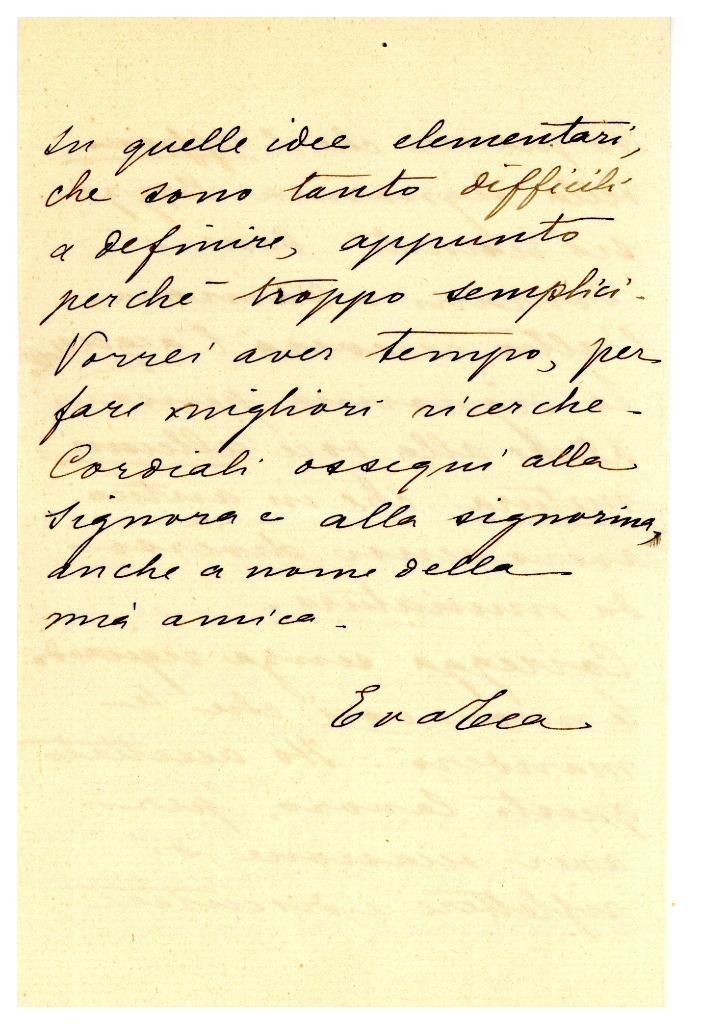 su quelle idee elementari,
che sono tanto difficili
a definire, appunto
perchè troppo semplici.
Vorrei aver tempo, per
fare migliori ricerche -
Cordiali ossequi alla
Signora e alla signorina,
anche a nome della
mia amica.
Eva Tea